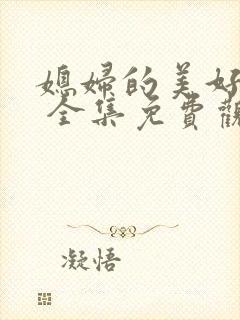 媳婦的美好
全集免費觀
凝悟